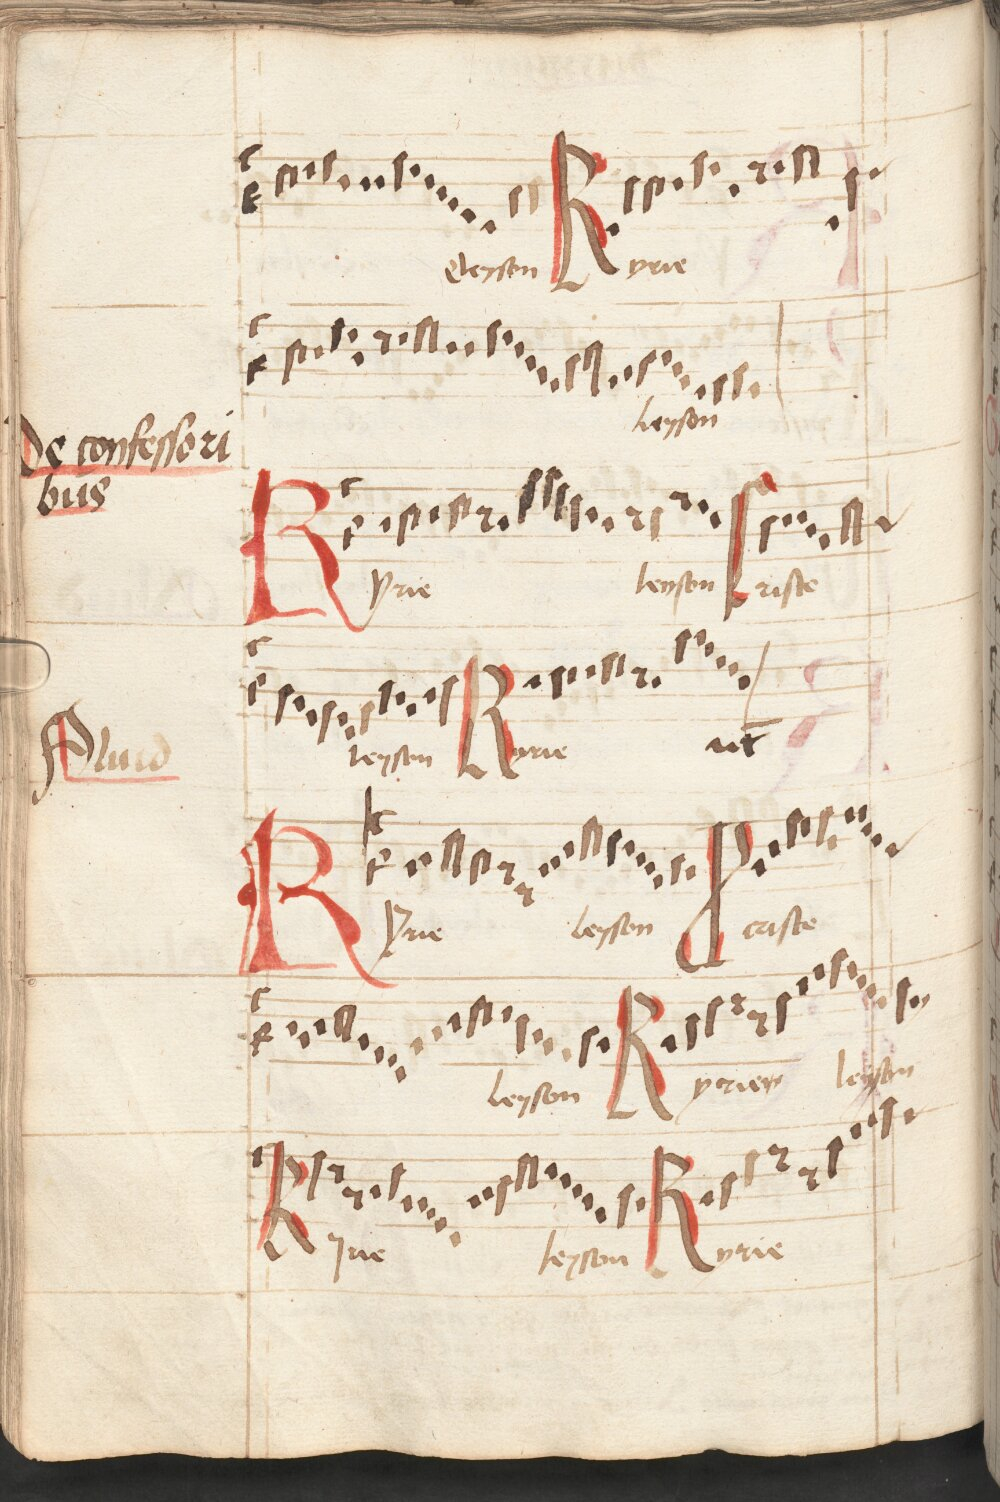 eleyson Kyrie
leyson
De confessori
bus
Kyrie leyson criste
leyson Kyrie ut
Aliud
Kyrie leyson criste
leyson Kyrie leyson
Kyrie leyson Kyrie